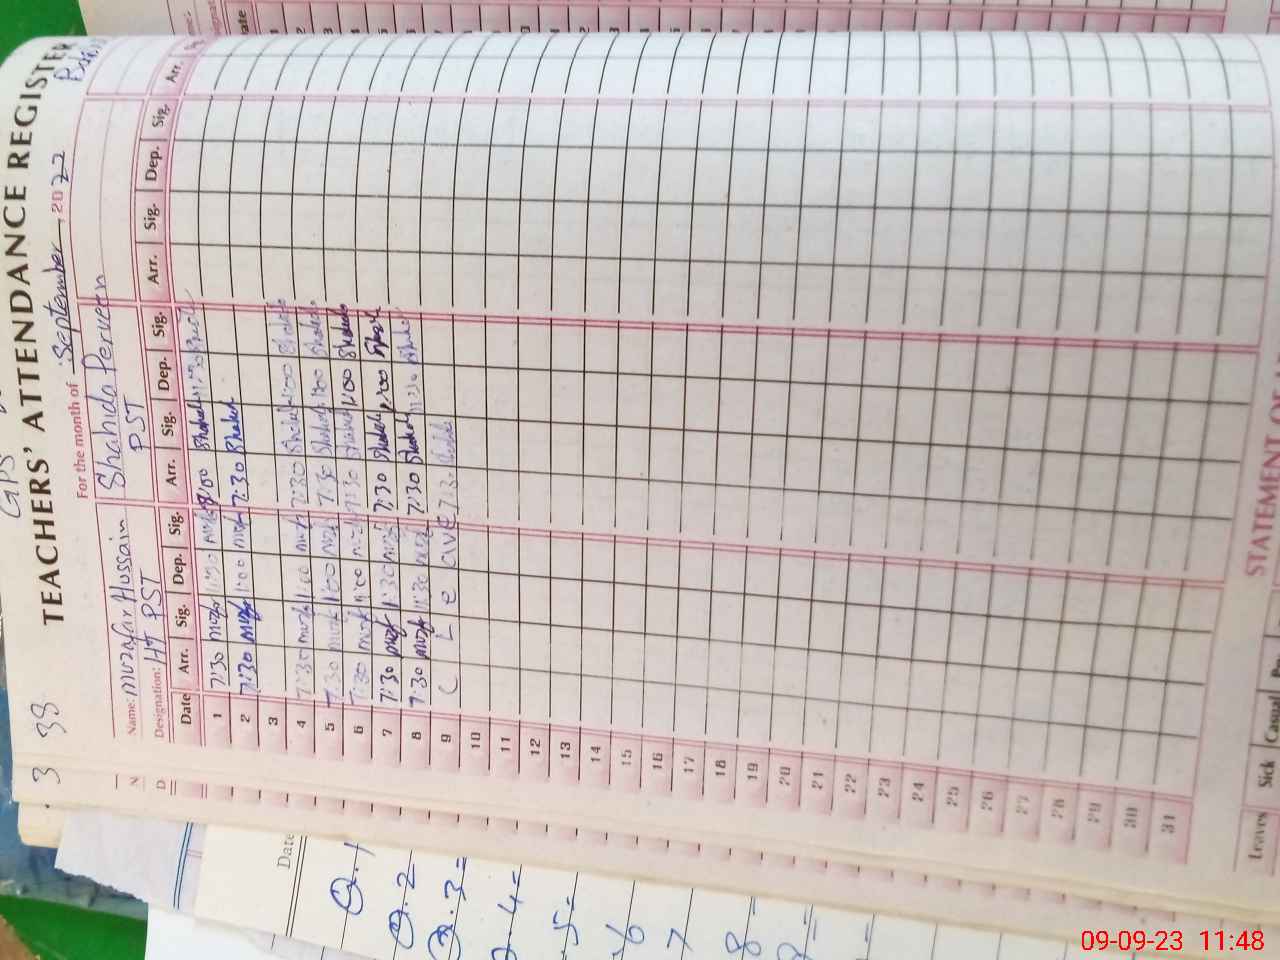 3 38 TEACHERS' ATTENDANCE REGISTER
GPS
For the month of September, 2022
Name: Muzafar Hussain Shahida Perveen
Designation: HT PST PST
Date Arr. Sig. Dep. Sig. Arr. Sig. Dep. Sig. Arr. Sig. Dep. Sig. Arr.
1 7:30 muzf 11:30 muzf 8:00 Shahid 11:30
2 7:30 muzf 1:00 muzf 7:30 Shahid
3
4 7:30 muzf 1:00 muzf 7:30 Shahid 1:00 Shahid
5 7:30 muzf 1:00 muzf 7:30 Shahid 1:00 Shahid
6 7:30 muzf 1:00 muzf 7:30 Shahid 1:00 Shahid
7 7:30 muzf 1:30 muzf 7:30 Shahid 1:00 Shah
8 7:30 muzf 11:30 muzf 7:30 Shahid 11:30 Shahid
9 C Leave 7:30
10
11
12
13
14
15
16
17
18
19
20
21
22
23
24
25
26
27
28
29
30
31
STATEMENT OF
Leaves Sick Casual
Date
Q.1
Q.2
Q.3=
Q.4=
5=
6
7
8
9=
09-09-23 11:48